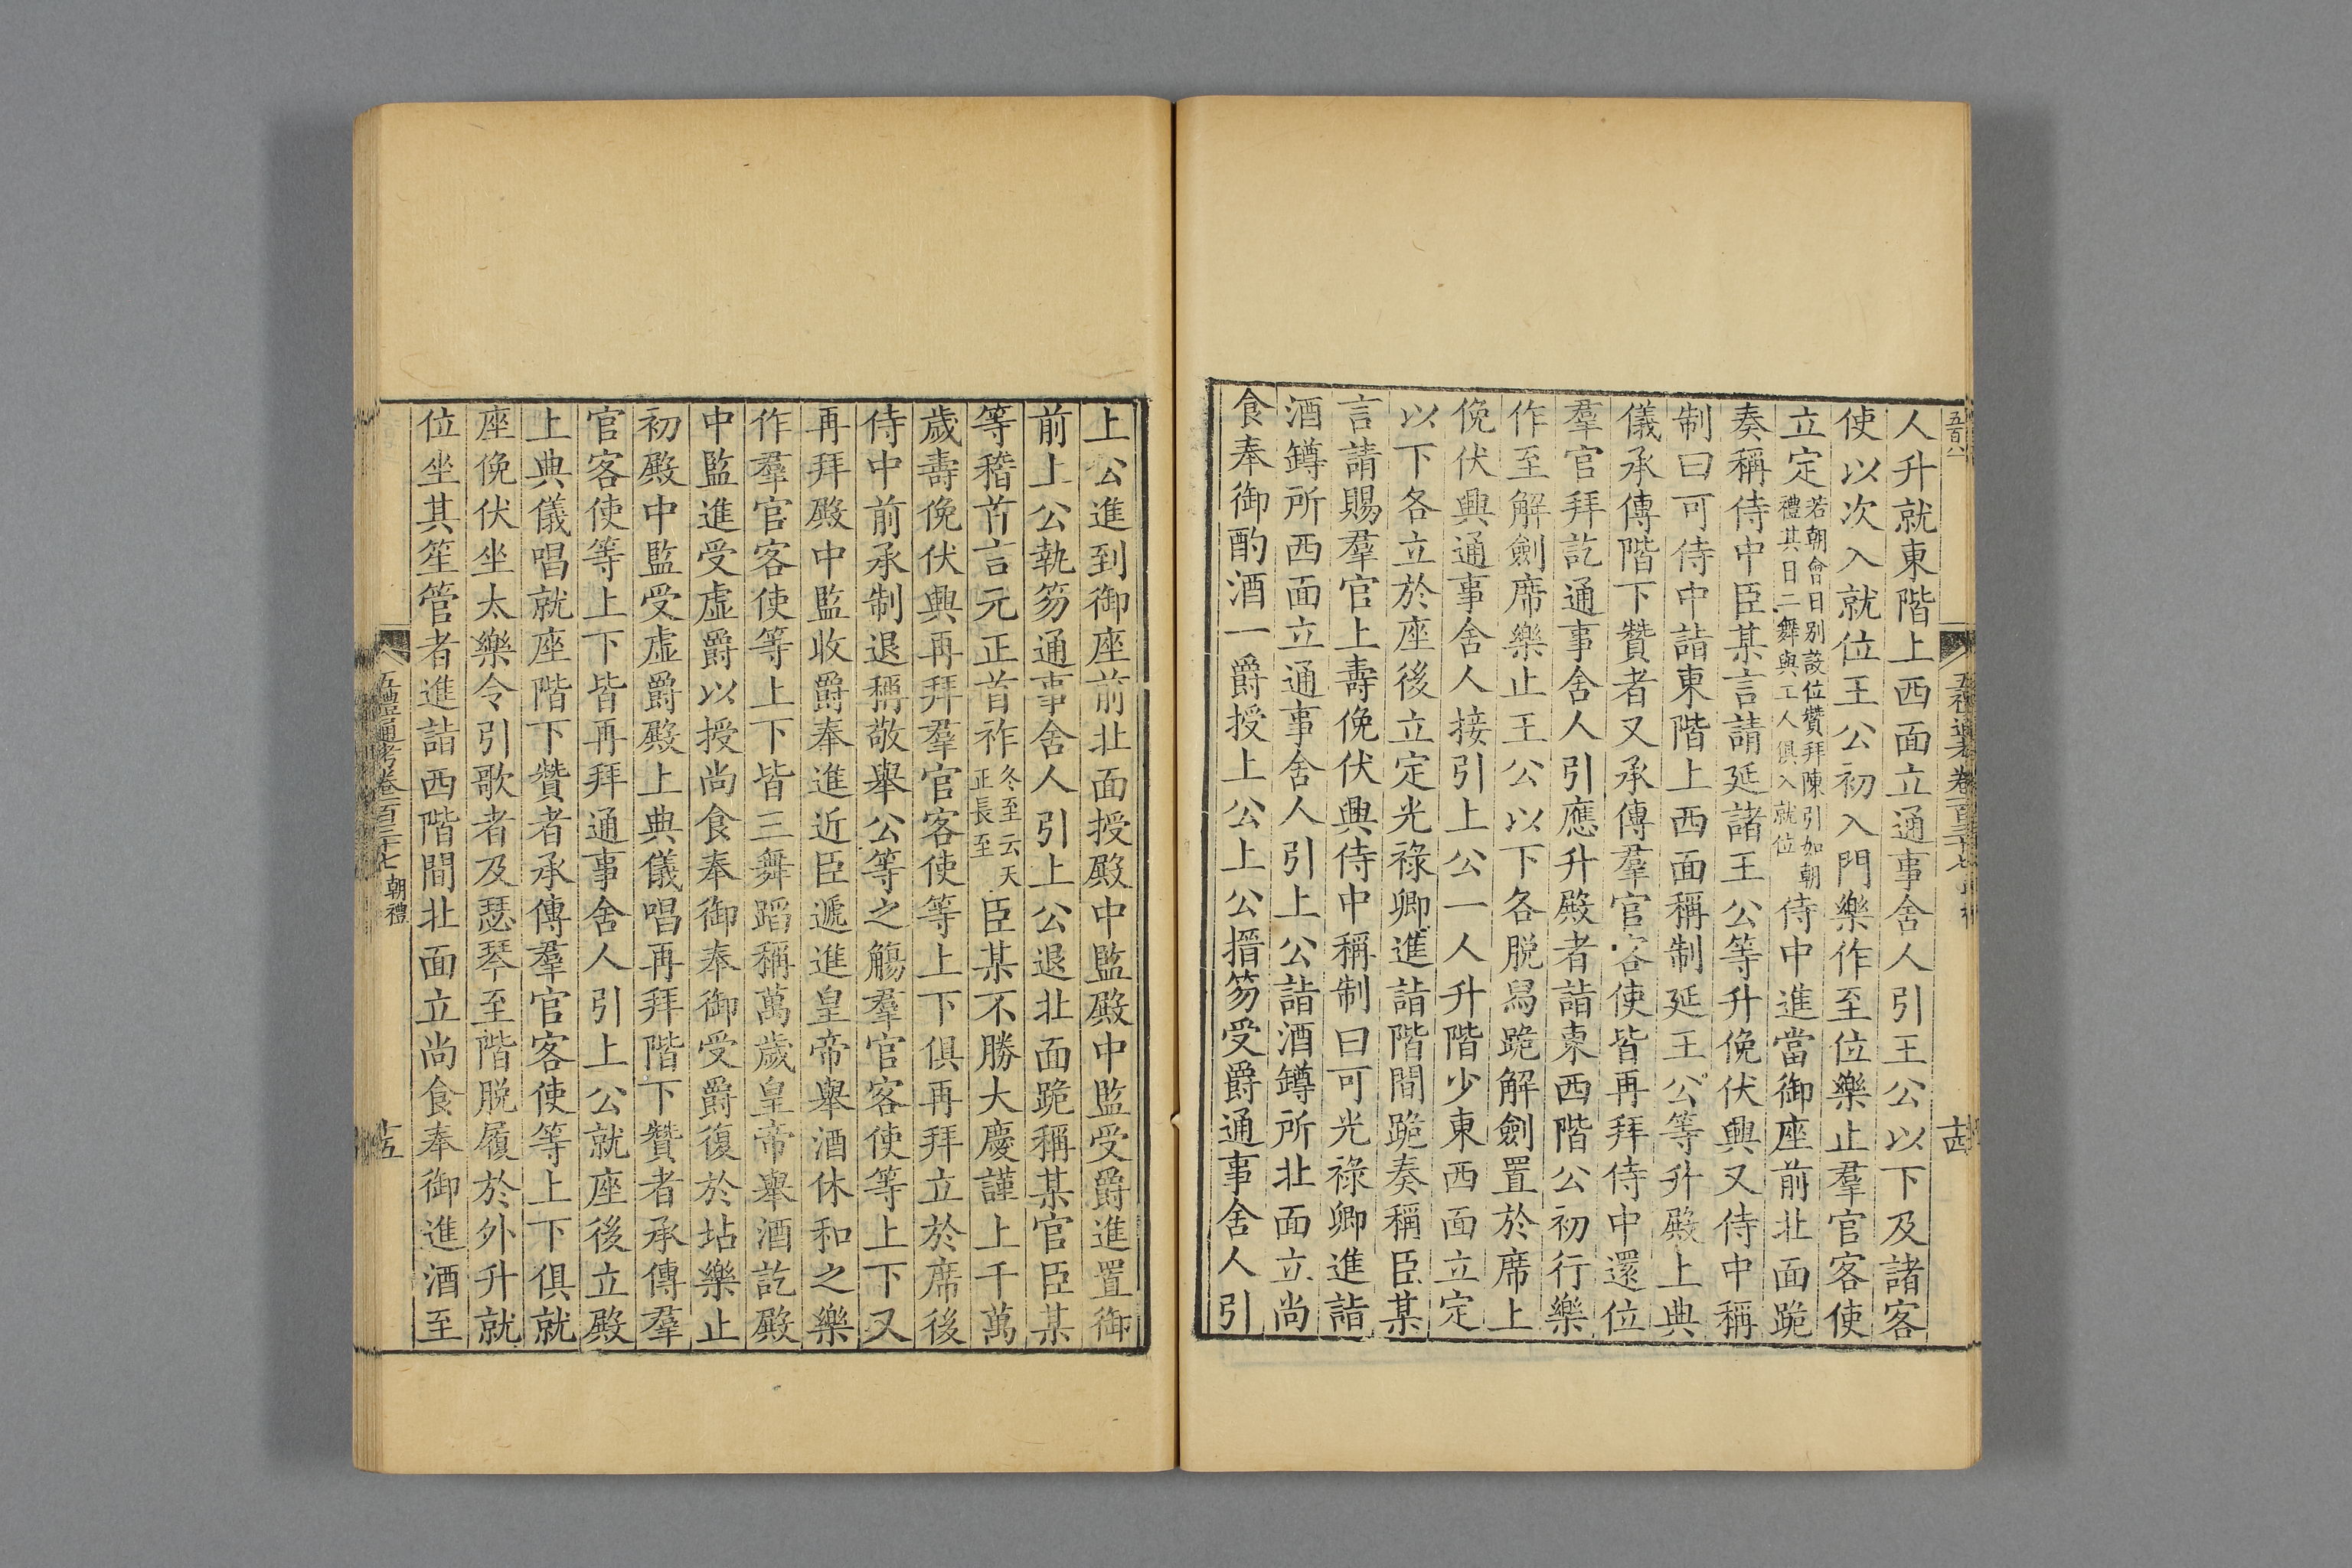 人升就東階上西面立通事舍人引王公以下及諸客
使以次入就位王公初入門樂作至位樂止羣官客使
立定若朝會日別設位贊拜陳引如朝禮其日二舞與工人俱入就位侍中進當御座前北面跪
奏稱侍中臣某言請延諸王公等升俛伏興又侍中稱
制曰可侍中詣東階上西面稱制延王公等升殿上典
儀承傳階下贊者又承傳羣官客使皆再拜侍中還位
羣官拜訖通事舍人引應升殿者詣東西階公初行樂
作至解劍席樂止王公以下各脱舄跪解劍置於席上
俛伏興通事舍人接引上公一人升階少東西面立定
以下各立於座後立定光祿卿進詣階間跪奏稱臣某
言請賜羣官上壽俛伏興侍中稱制曰可光祿卿進詣
酒罇所西面立通事舍人引上公詣酒罇所北面立尚
食奉御酌酒一爵授上公上公搢笏受爵通事舍人引
上公進到御座前北面授殿中監殿中監受爵進置御
前上公執笏通事舍人引上公退北面跪稱某官臣某
等稽首言元正首祚冬至云天正長至臣某不勝大慶謹上千萬
歲壽俛伏興再拜羣官客使等上下俱再拜立於席後
侍中前承制退稱敬舉公等之觴羣官客使等上下又
再拜殿中監收爵奉進近臣遞進皇帝舉酒休和之樂
作羣官客使等上下皆三舞蹈稱萬歲皇帝舉酒訖殿
中監進受虛爵以授尚食奉御奉御受爵復於坫樂止
初殿中監受虛爵殿上典儀唱再拜階下贊者承傳羣
官客使等上下皆再拜通事舍人引上公就座後立殿
上典儀唱就座階下贊者承傳羣官客使等上下俱就
座俛伏坐太樂令引歌者及瑟琴至階脱履於外升就
位坐其笙管者進詣西階間北面立尚食奉御進酒至
五禮通考卷一百三十七 朝禮